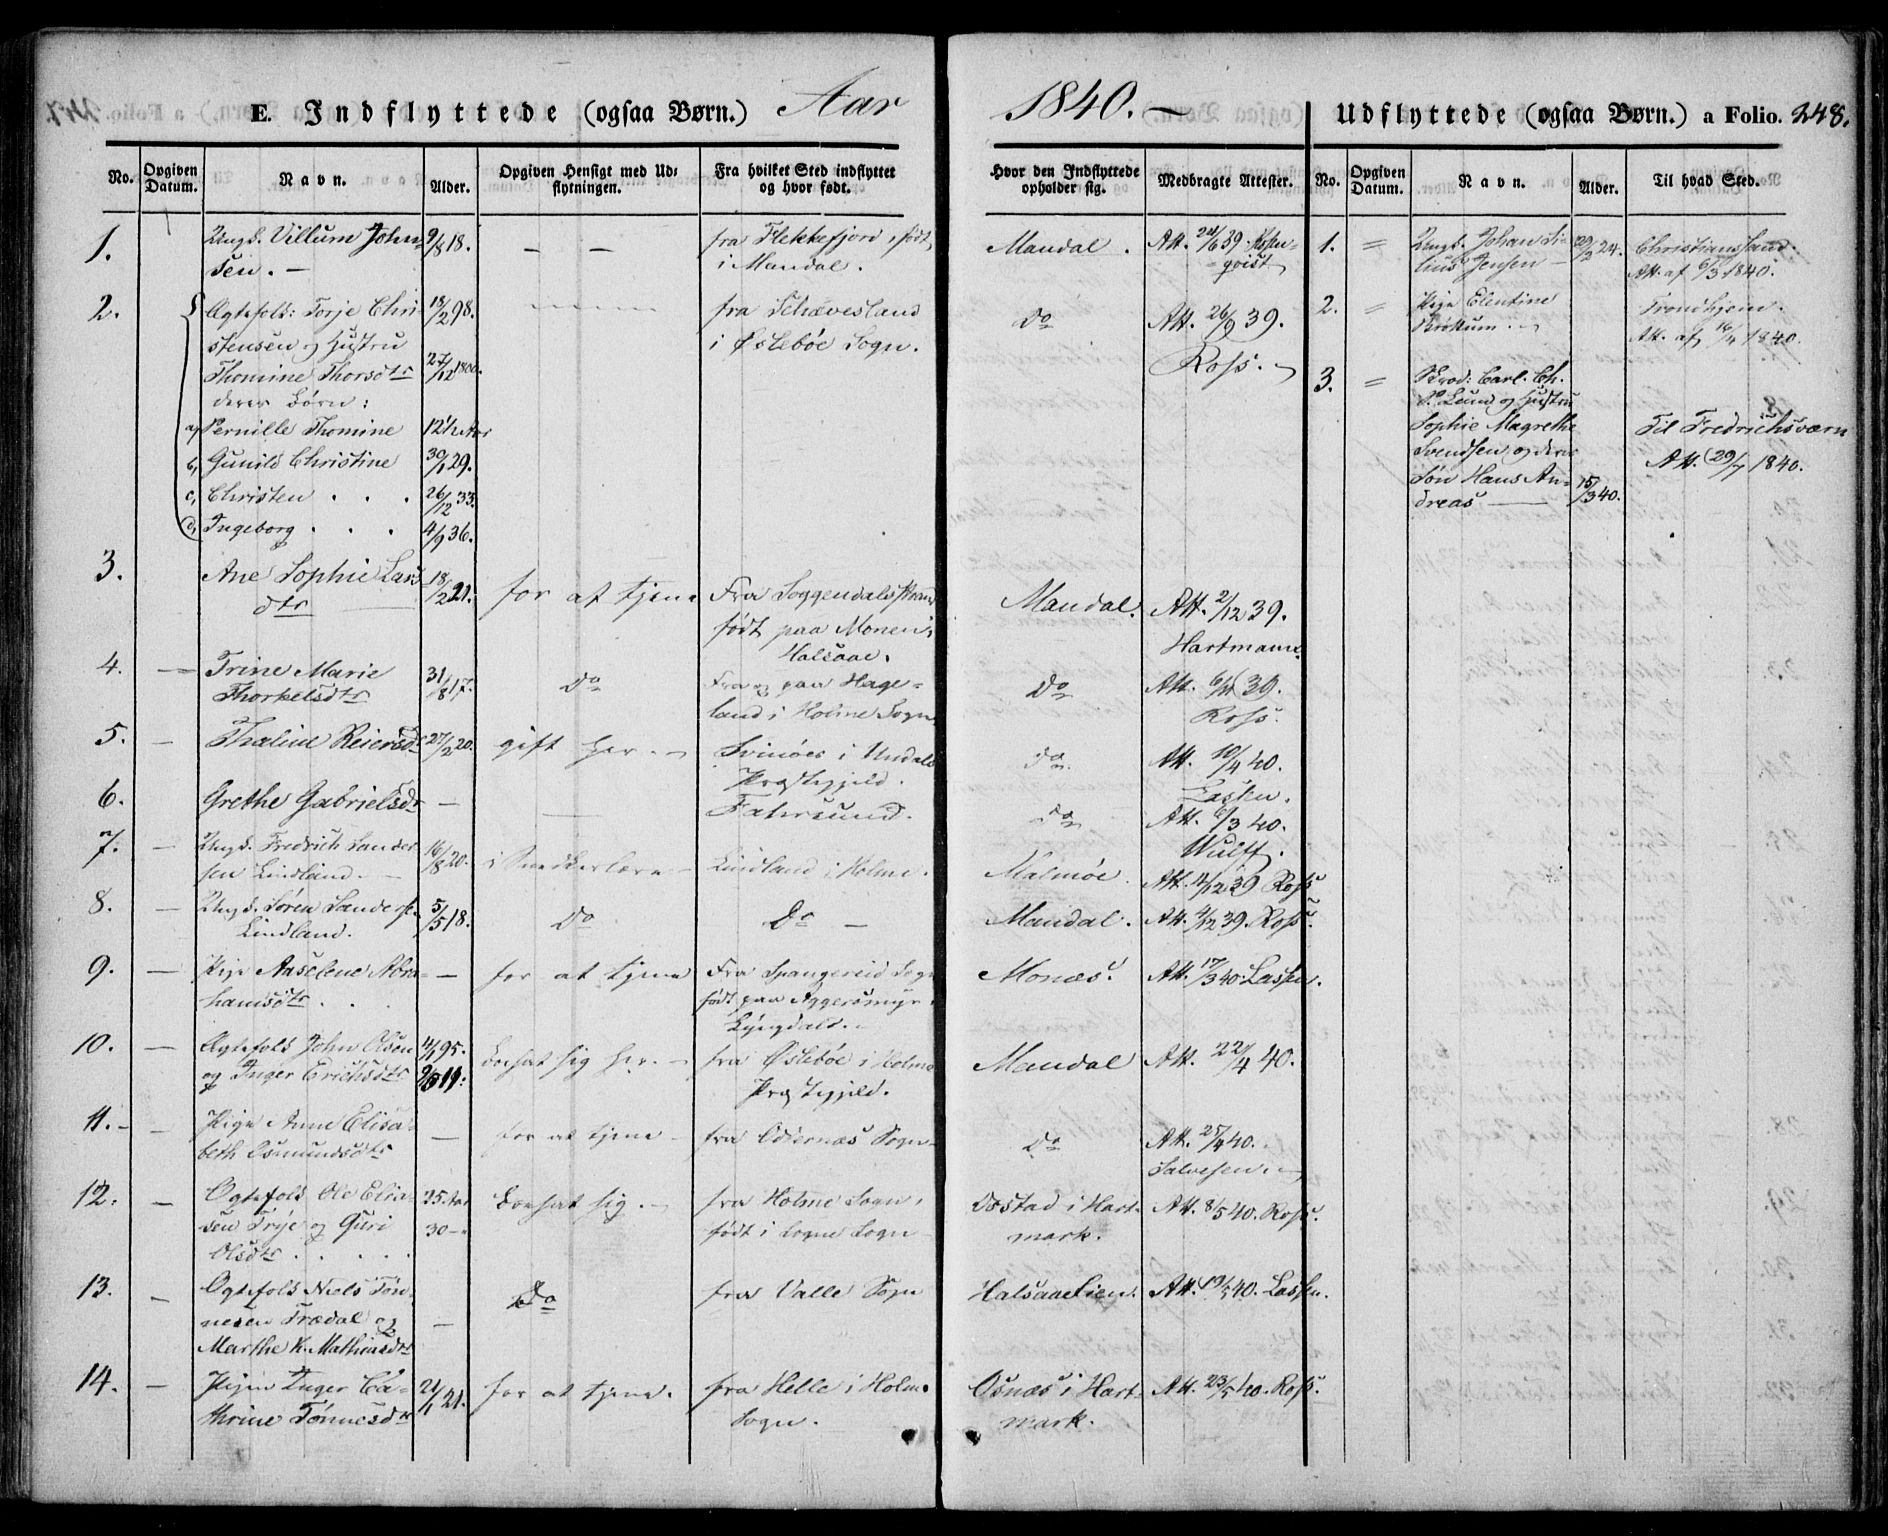 E. Indflyttede (ogsaa Børn.) Aar 1840. — Udflyttede (ogsaa Børn.) a Folio. 248.
No. Opgiven Datum. Navn. Alder. Opgiven Hensigt med Udflytningen. Fra hvilket Sted indflyttet og hvor født. Hvor den Indflyttede opholder sig. Medbragte Attester.
1. Ungk. Villum John- 9/8 18. — — fra Flekkefjord, født Mandal.
sen. — i Mandal.
2. Ægtefolk: Torje Chri- 18/2 98. fra Schævesland do Att. 26/9 39.
stensen og Hustru i Øslebøe Sogn. Ross.
Thomine Thorsdtr 27/12 1800.
deres Børn:
a, Pernille Thomine 12½ Aar
b, Gunild Christine 30/1 29.
c, Christen . . . 26/12 33.
d, Ingeborg . . . 4/9 36.
3. Ane Sophie Lars- 18/2 21. for at tjene Fra Soggendalsstrand Mandal. Att. 2/12 39.
dtr født paa Monen, Hartmann.
Halsaae.
4. — Trine Marie 31/8 17. do Fra og paa Hage- do Att. 39.
Thorkelsdtr land i Holme Sogn Ross.
5. — Thaline Reiersd 27/2 20. gift her. Svinøer i Undals do Att. 10/4 40.
Præstegjeld. Lassen.
6. Grethe Gabrielsdr — — Fahrsund. do Att. 6/3 40.
Wulff.
7. — Ungk. Fredrich Sander- 16/8 20. i Snedkerlære — Lindland i Holme. Malmøe. Att. 12/12 39 Ross
sen Lindland. —
8. — Ungk. Søren Sanderse 5/5 18. do Do — Mandal. Att. 39. Ross.
Lindland.
9. — Pige Aaselene Abra- — for at tjene Fra Spangereid Sogn Monæs. Att. 17/3 40. Lassen.
hamsdtr . . født paa Aggersmyr
Lyngdald.
10. — Ægtefolk John Olsen 95. bosat sig her. — fra Øslebøe i Holme Mandal Att. 22/4 40.
og Inger Erichsdtr Præstegjeld.
11. — Pige Anne Elisa- — for at tjene — fra Odernæs Sogn do Att. 25/4 40.
beth Osmundsdtr Salvesen.
12. — Ægtefolk Ole Elia- 35 Aar bosat sig. fra Holme Sogn, Dostad i Hart- Att. 8/5 40. Ross.
sen Trye og Guri 30 — født i Sogne Sogn mark.
Olsdtr . . . .
13. — Ægtefolk Niels Tøn- — Do fra Valle Sogn Halsaaelien. Att. 19/5 40. Lassen.
nesen Trædal og
Marthe K. Mathiasdtr
14. — Pigen Inger Ca- 21/1 21. for at tjene. fra Helle i Holme Osnæs i Hart- Att. 23/5 40. Ross.
thrine Tønnesdtr Sogn. mark.
No. Opgiven Datum. Navn. Alder. Til hvad Sted.
1. = Ungk. Johan Si- 29/2 24. Christianssand.
lius Jensen Att. af 6/3 1840.
2. = Pige Elentine Trondhjem.
Att. af 16/4 1840.
3. = Carl. Ch.
P. Lund og Hustru
Sophie Magrethe Til Fredrichsværn
Svendsen og deres Att. 29/7 1840.
Søn Hans An- 15/3 40.
dreas —